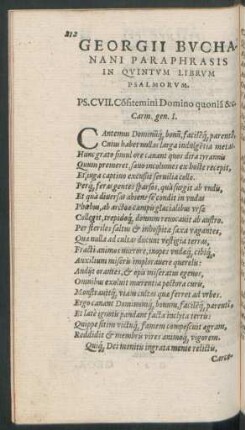 212
GEORGII BVCHA-
NANI PARAPHRASIS
IN QVINTVM LIBRVM
PSALMORVM.
PS. CVII. Cōfitemini Domino quoniā &c.
Carm. gen. I.
CAntemus Dominūq́, bonū, facilēq́, parentē
Cuius habet nullas larga indulgētia metas.
Hunc grato simul ore canant quos dira tyranni
Quum premeret, sauo incolumes ex hoste recepit,
Et iuga captino excussit seruilia collo.
Perq́, feras gentes sparsos, quà surgit ab vndis,
Et quà diuersas abiens se condit in vndas
Phœbus, ab arctoa campis glacialibus vrsa
Collegit, trepidosq́, domum renocauit ab austro.
Per steriles saltus & inhospita saxa vagantes,
Qua nulla ad cultas ducunt vestigia terras,
Fracti animos mœrore, inopes vndæq́, cibiq́,
Auxilium miseris implorauere querelis:
Audijt orantes, & opis miseratus egenos,
Omnibus exuluit mœrentia pectora curis,
Monstrauitq́, viam cultas quæ ferret ad vrbes.
Ergo canant Dominumq́, bonum, facilēq́, parentē,
Et latè ignotis pandant facta inclyta terris:
Quippe sitim victuq́, famem compescuit ægram,
Reddidit & membris vires animoq́, vigorem.
Quiq́, Dei monitis ingrata mente relictis,
Carce-